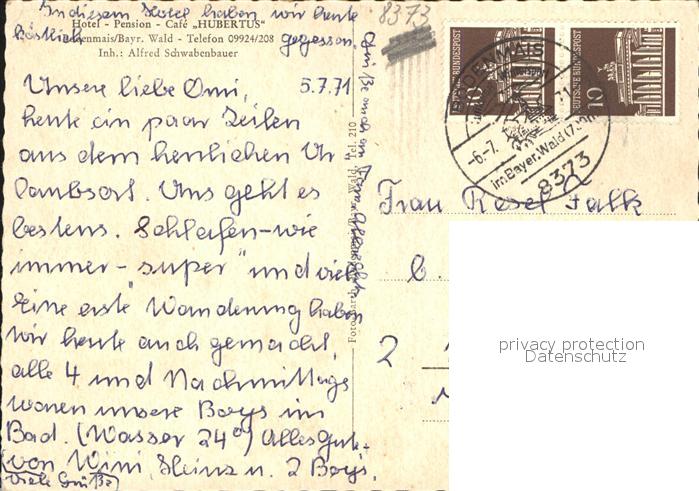 In diesem Hotel haben wir heute
8373
Hotel - Pension - Café „HUBERTUS"
köstlich
Bodenmais/Bayr. Wald - Telefon 09924/208
gegessen.
Inh.: Alfred Schwabenbauer
Unsere liebe Omi, 5.7.71
heute ein paar Zeilen
aus dem herrlichen Ur-
laubsort. Uns geht es
bestens. Schlafen - wie
immer - "super" und viel
Eine erste Wanderung haben
wir heute auch gemacht,
alle 4 und Nachmittags
waren unsere Boys im
Bad. (Wasser 24°) Alles Gute
von Wini, Heinz u. 2 Boys.
(viele Grüße)
Grüße auch an Fam.
Tel. 210
DEUTSCHE BUNDESPOST
10
DEUTSCHE BUNDESPOST
10
BODENMAIS
-6.-7.71
im Bayer. Wald (700m)
8373
Frau Rosel Falk
b.
2
privacy protection
Datenschutz